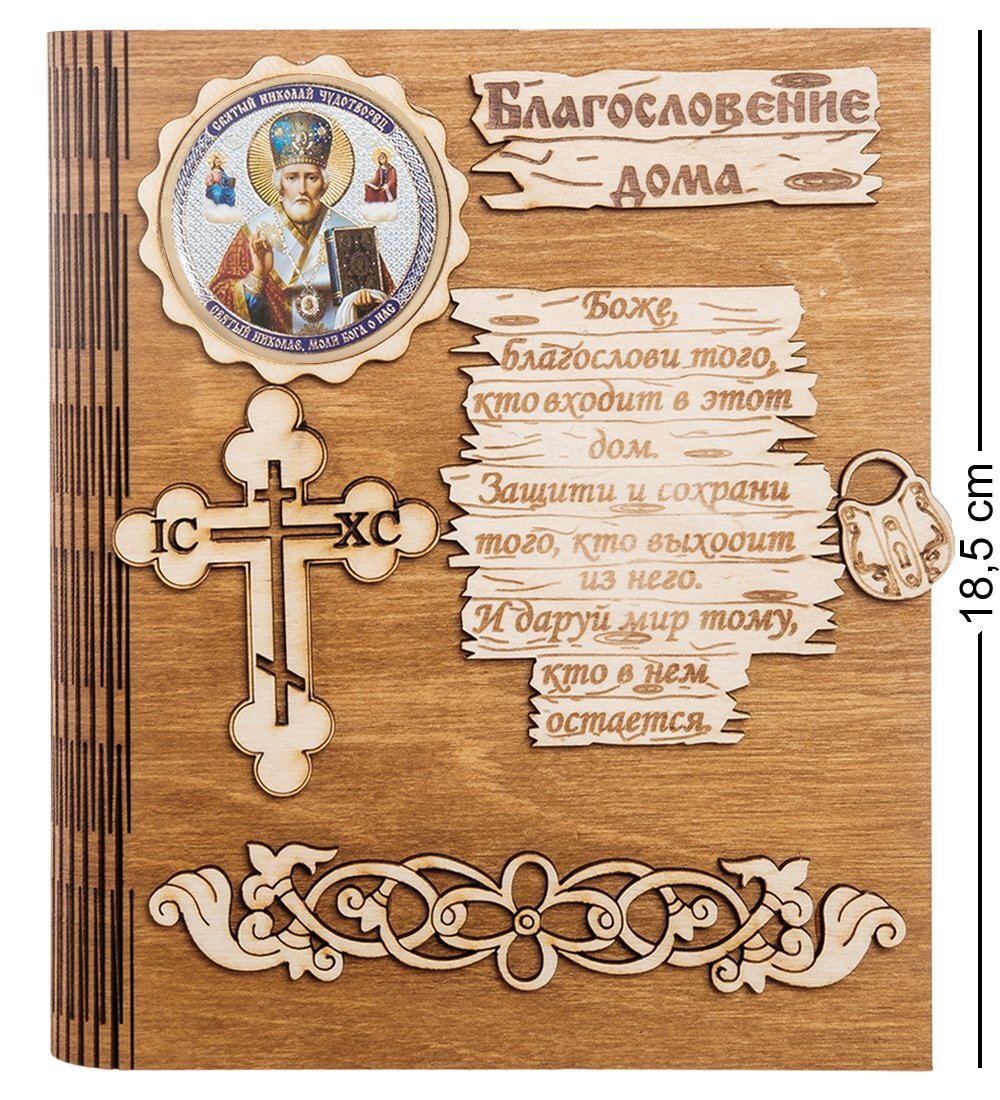 СВЯТЫЙ НИКОЛАЙ ЧУДОТВОРЕЦ
СВЯТЫЙ НИКОЛАЕ, МОЛИ БОГА О НАС
Благословение
дома
Боже,
благослови того,
кто входит в этот
дом.
Защити и сохрани
того, кто выходит
из него.
И даруй мир тому,
кто в нем
остается.
IC XC
18,5 cm